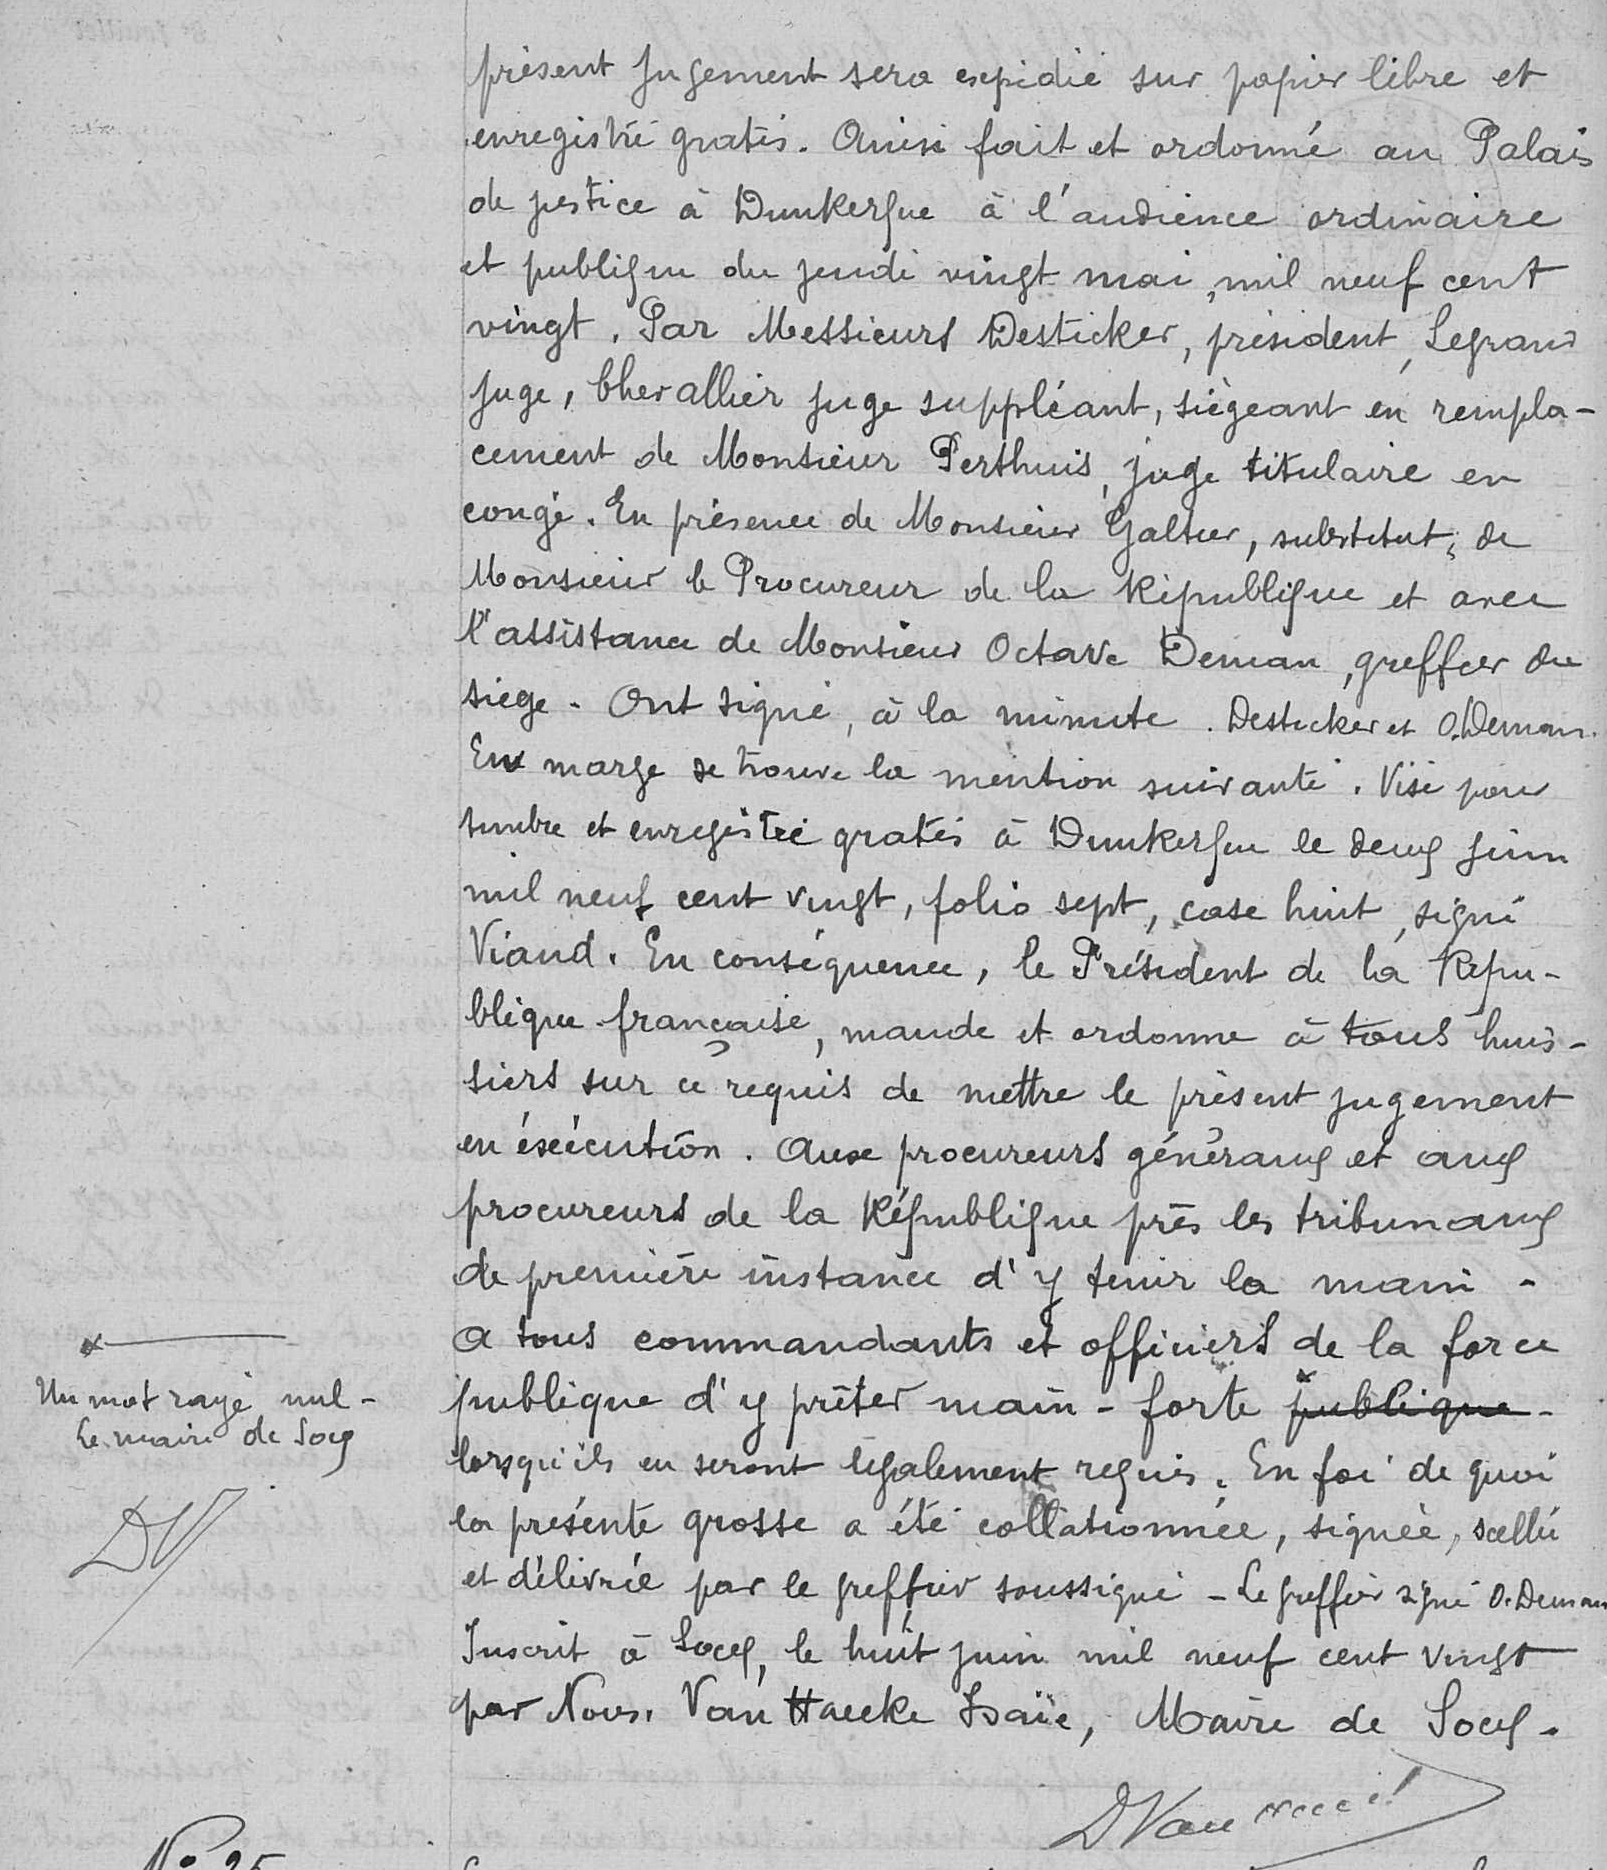 présent jugement sera expédié sur papier libre et
enregistré gratis. Ainsi fait et ordonné au Palais
de justice à Dunkerque à l'audience ordinaire
et publique du jeudi vingt mai, mil neuf cent
vingt. Par Messieurs Desticker, président, Legrand
juge, Chevallier juge suppléant, siègeant en rempla-
cement de Monsieur Perthuis, juge titulaire en
congé. En présence de Monsieur Galtier, substitut, de
Monsieur le Procureur de la République et avec
l'assistance de Monsieur Octave Deman, greffier du
siège. Ont signé, à la minute. Desticker et O. Deman.
En marge se trouve la mention suivante. Visé pour
timbre et enregistré gratis à Dunkerque le deux juin
mil neuf cent vingt, folio sept, case huit, signé
Viand. En conséquence, le Président de la Répu-
blique française, mande et ordonne à tous huis-
siers sur ce requis de mettre le présent jugement
en éxécution. Aux procureurs généraux et aux
procureurs de la République près les tribunaux
de première instance d'y tenir la main -
A tous commandants et officiers de la force
publique d'y prêter main-forte publique
lorsqu'ils en seront légalement requis. En foi de quoi
la présente grosse a été collationnée, signée, scellée
et délivrée par le greffier soussigné - Le greffier signé O. Deman
Inscrit à Socx, le huit juin mil neuf cent vingt
par Nous. Van Haecke Isaïe, Maire de Socx.
Un mot rayé nul -
Le maire de Socx
DV
No 25